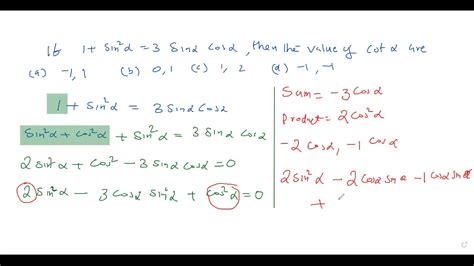 If 1 + sin²α = 3 sinα cosα, then the value of cot α are
(a) -1, 1 (b) 0, 1 (c) 1, 2 (d) -1, -1
1 + sin²α = 3 sinα cosα
sin²α + cos²α + sin²α = 3 sinα cosα
2 sin²α + cos² - 3 sinα cosα = 0
2 sin²α - 3 cosα sin²α + cos²α = 0
Sum = -3 cosα
Product = 2 cos²α
-2 cosα, -1 cosα
2 sin²α - 2 cosα sinα - 1 cosα sinα
+